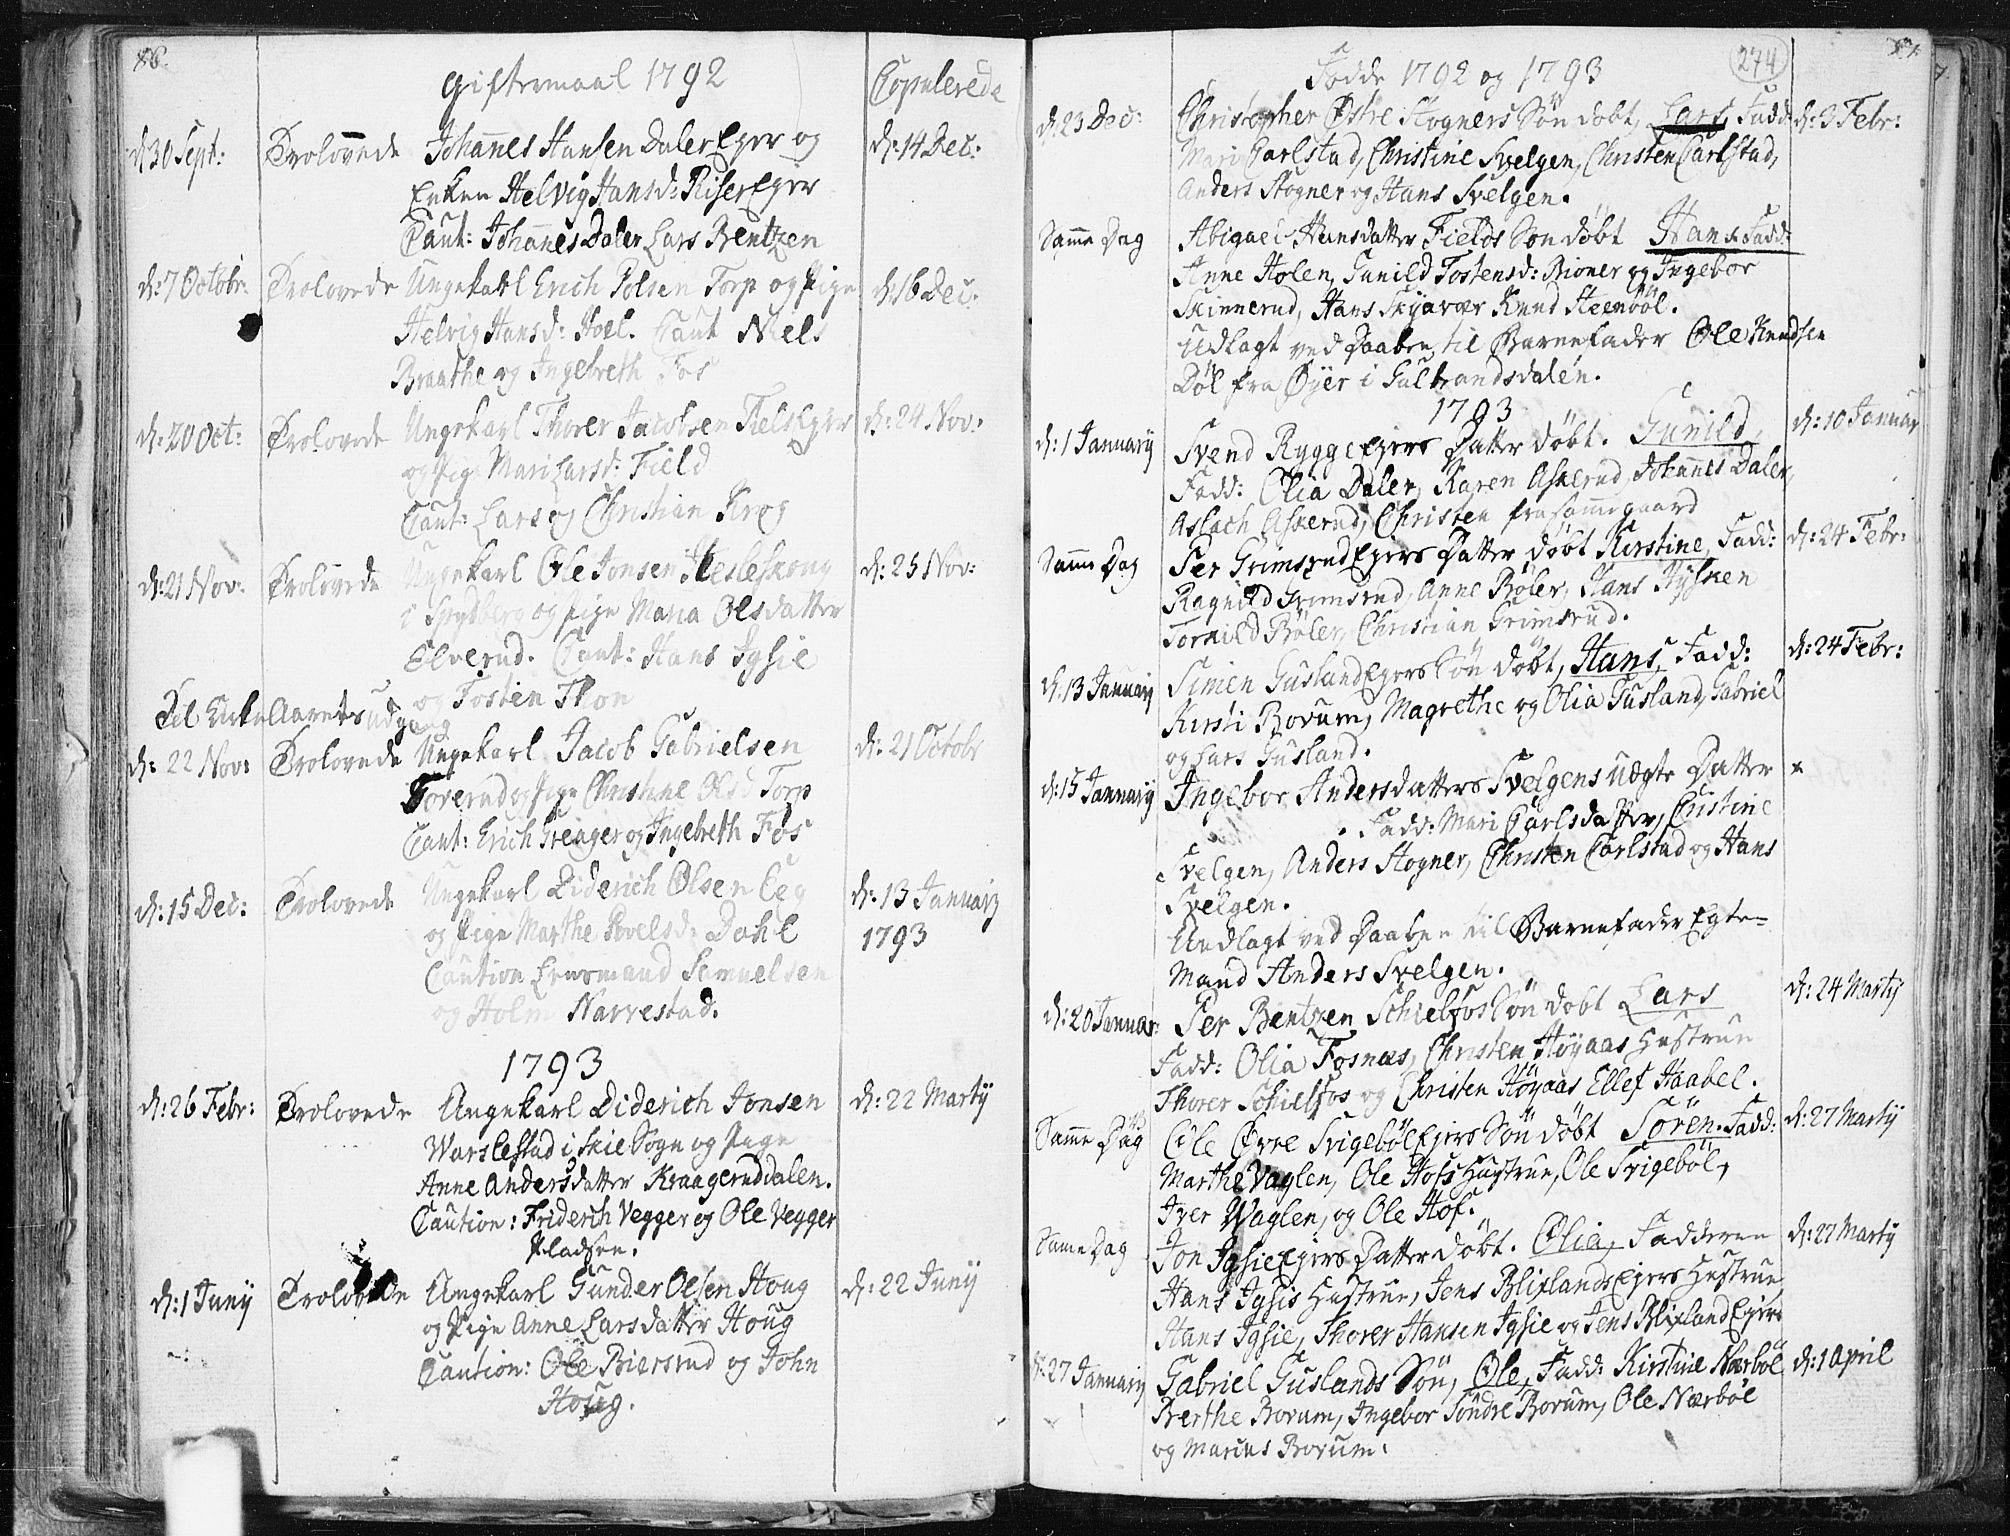 86.
Giftermaal 1792
Copulerede
d: 30 Sept: Trolovede Johannes Hansen Daler Eger og d: 14 Dec:
Enken Helvig Hansd: Riser Eger
Caut: Johannes Daler Lars Bentzen
d: 7 Octobr: Trolovede Ungekarl Erich Polsen Torp og Pige d: 16 Dec:
Helvig Hansd: Hoel. Caut Niels
Braathe og Ingebreth Fos
d: 20 Oct: Trolovede Ungekarl Thorer Jacobsen d: 24 Nov:
og Pige Mari Larsd: Field
Caut: Lars og Christian Krog
d: 21 Nov: Trolovede Ungekarl Ole Jonsen Hesleskoug d: 25 Nov:
i Spydberg og Pige Maria Olsdatter
Elverud. Caut: Hans Igsie
og Tosten Thon
Til Aarets udgang
d: 22 Nov: Trolovede Ungekarl Jacob Gabrielsen d: 21 Octobr
og Pige Christine Olsd Torp
Caut: Erich Greager og Ingebreth Fos
d: 15 Dec: Trolovede Ungekarl Diderich Olsen Eeg d: 13 January
og Pige Marthe Povelsd: Dahl 1793
Caution Lensmand Samuelsen
og Holm Narrestad.
1793
d: 26 Febr: Trolovede Ungekarl Diderich Jonsen d: 22 Martij
Warslestad i Skie Sogn og Pige
Anne Andersdatter Kraageruddalen.
Caution: Friderich Vegger og Ole Vegger
Pladsen.
d: 1 Junij Trolovede Ungekarl Gunder Olsen Houg d: 22 Junij
og Pige Anne Larsdatter Houg
Caution: Ole Biersrud og John
Houg.
Fødde 1792 og 1793
274
d: 23 Dec: Christopher Østre Stogners Søn døbt, Lars, Fadd: d: 3 Febr:
Mari Carlstad, Christine Svelgen, Christen Carlstad,
Anders Stogner og Hans Svelgen.
Samme Dag Abigael Hansdatter Fields Søn døbt Hans Fadd:
Anne Holen, Gunild Tostensd: Bioner og Ingebor
Skinnerud, Hans Knud Steenbøl.
Udlagt ved Daaben til Barnefader Ole Knudsen
Døl fra Øyer i Gulbrandsdalen.
1793
d: 1 January Svend Rygge Eiers Datter døbt. Gunild, d: 10 Januar
Fadd: Olia Daler, Karen Askerud, Johannes Daler,
Aslach Askerud, Christen fra samme gaard
Samme Dag Per Grimsrud Eiers Datter døbt Kirstine, Fadd: d: 24 Febr:
Ragnild Grimsrud, Anne Bøler, Hans Tysken
Torkild Bøler, Christian Grimsrud.
d: 13 January Simen Gusland Eiers Søn døbt, Hans, Fadd: d: 24 Febr:
Kirsti Borum, Magrethe og Olia Gusland, Gabriel
og Lars Gusland.
d: 15 January Ingebor Andersdatters Svelgens uægte Datter x
Fadd: Mari Carlsdatter, Cristine
Svelgen, Anders Stogner, Christen Carlstad og Hans
Svelgen.
Undlagt ved Daaben til Barnefader Egte-
Mand Anders Svelgen.
d: 20 Januar: Per Bentzen Schielfos Søn døbt Lars d: 24 Martij
Fadd: Olia Fosnæs, Christen Høyaas Hustrue
Thorer Schielfos og Christen Høyaas Ellef Haabel.
Samme Dag Ole Øvre Svigebøl Eiers Søn døbt Søren. Fadd: d: 27 Martij
Marthe Vaglen, Ole Hofs Hustrue, Ole Svigebøl,
Iver Waglen, og Ole Hof.
Samme Dag Jon Igsie Eiers Datter døbt. Olia, Fadderne d: 27 Martij
Hans Igsis Hustrue, Jens Blixlands Eiers Hustrue,
Hans Igsie, Thorer Hansen Igsie og Jens Blixland Eiers
d: 27 January Gabriel Guslands Søn, Ole, Fadd: Kirstine Nærbøl d: 1 April
Berthe Borum, Ingebor Søndre Borum, Ole Nærbøl
og Marcus Borum.